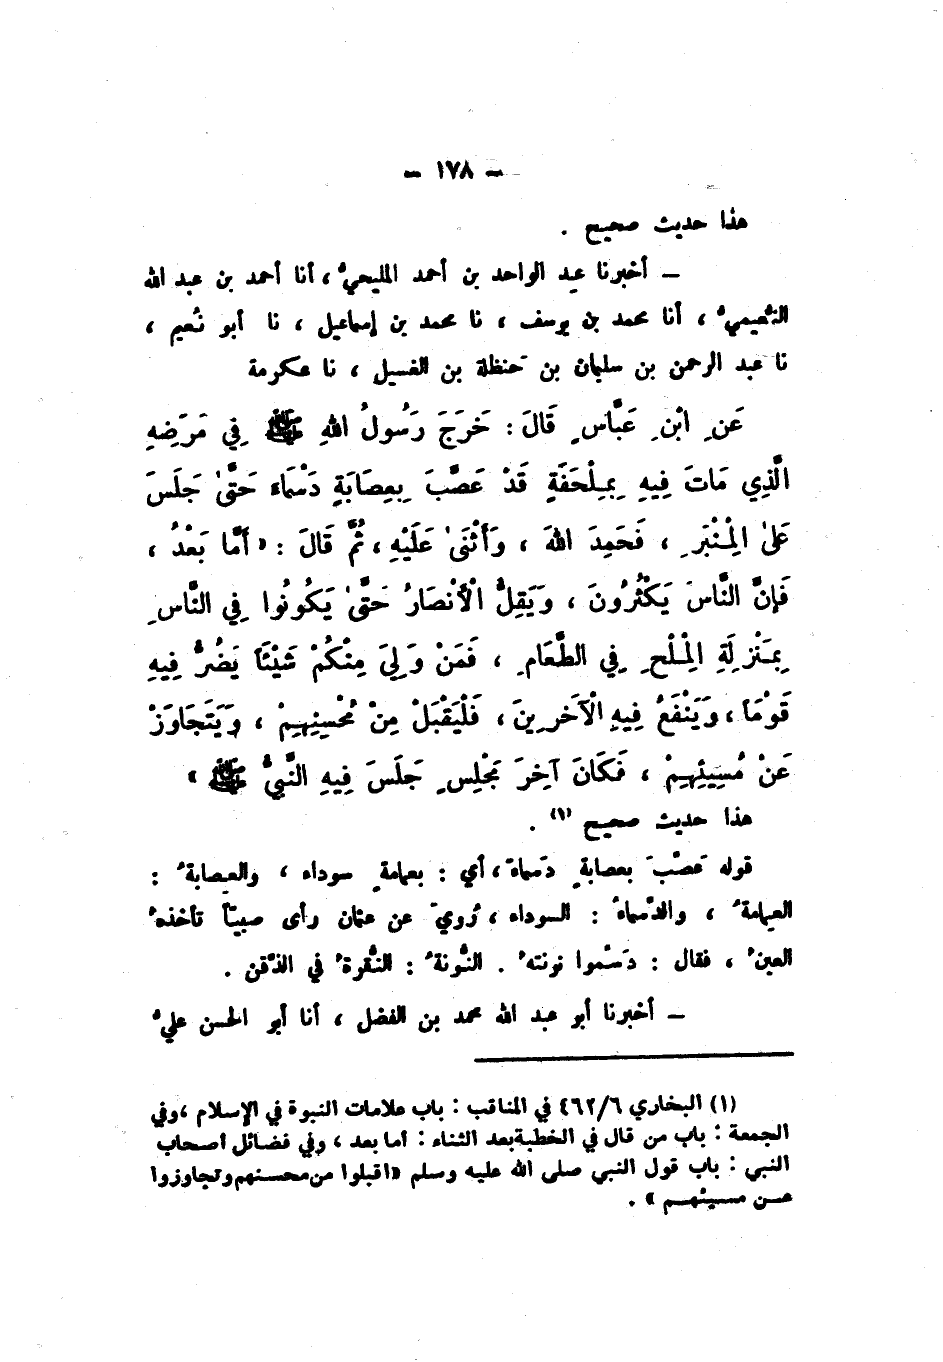 - ١٧٨ -
هذا حديث صحيح .
– أخبرنا عبد الواحد بن أحمد المليحيُّ ، أنا أحمد بن عبد الله
النُّعيميُّ ، أنا محمد بن يوسف ، نا محمد بن إسماعيل ، نا أبو نُعيم ،
نا عبد الرحمن بن سليمان بن حَنظلة بن الغسيل ، نا عكرمة
عَنِ ابْنِ عَبَّاسٍ قَالَ : خَرَجَ رَسُولُ اللهِ ﷺ فِي مَرَضِهِ
الَّذِي مَاتَ فِيهِ بِمِلْحَفَةٍ قَدْ عَصَّبَ بِعِصَابَةٍ دَسْمَاءَ حَتَّىٰ جَلَسَ
عَلىٰ الْمِنْبَرِ ، فَحَمِدَ اللهَ ، وَأَثْنَىٰ عَلَيْهِ ، ثُمَّ قَالَ : « أَمَّا بَعْدُ ،
فَإِنَّ النَّاسَ يَكْثُرُونَ ، وَيَقِلُّ الْأَنْصَارُ حَتَّىٰ يَكُونُوا فِي النَّاسِ
بِمَنْزِلَةِ الْمِلْحِ فِي الطَّعَامِ ، فَمَنْ وَلِيَ مِنْكُمْ شَيْئًا يَضُرُّ فِيهِ
قَوْمًا ، وَيَنْفَعُ فِيهِ الْآخَرِينَ ، فَلْيَقْبَلْ مِنْ مُحْسِنِهِمْ ، وَيَتَجَاوَزْ
عَنْ مُسِيئِهِمْ ، فَكَانَ آخِرَ مَجْلِسٍ جَلَسَ فِيهِ النَّبِيُّ ﷺ »
هذا حديث صحيح (١) .
قوله عَصَّبَ بعصابةٍ دَسماءَ ، أي : بعمامةٍ سوداء ، والعصابةُ :
العمامةُ ، والدَّسماءُ : السوداء ، رُويَ عن عثمان رأى صبيّاً تأخذهُ
العينُ ، فقال : دَسِّموا نونتهُ . النُّونةُ : النُّقرةُ في الذَّقن .
– أخبرنا أبو عبد الله محمد بن الفضل ، أنا أبو الحسن عليُّ
(١) البخاري ٤٦٢/٦ في المناقب : باب علامات النبوة في الإسلام ،وفي
الجمعة : باب من قال في الخطبةبعد الثناء : أما بعد ، وفي فضائل أصحاب
النبي : باب قول النبي صلى الله عليه وسلم «اقبلوا من محسنهم وتجاوزوا
عن مسيئهم » .